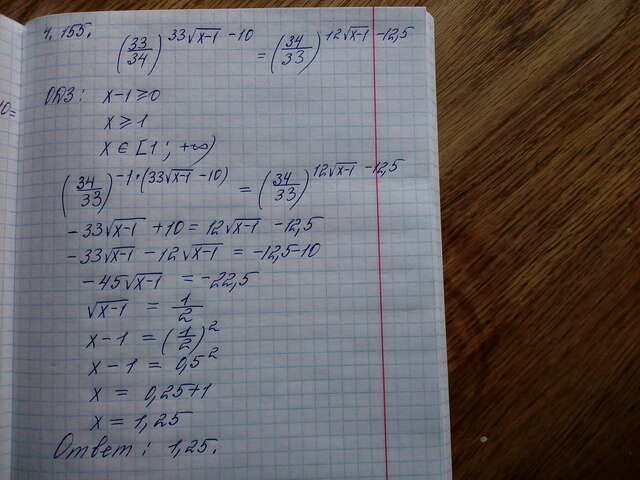 4.155.
(33/34)^(33√(x-1) - 10) = (34/33)^(12√(x-1) - 12,5)
ОДЗ: x-1≥0
x≥1
x∈[1; +∞)
(34/33)^(-1·(33√(x-1) - 10)) = (34/33)^(12√(x-1) - 12,5)
-33√(x-1) + 10 = 12√(x-1) - 12,5
-33√(x-1) - 12√(x-1) = -12,5-10
-45√(x-1) = -22,5
√(x-1) = 1/2
x-1 = (1/2)^2
x-1 = 0,5^2
x = 0,25+1
x = 1,25
Ответ: 1,25.
0=